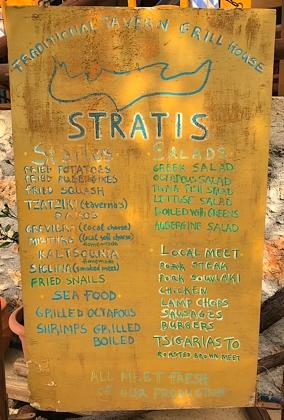 TRADITIONAL TAVERN GRILL HOUSE
STRATIS
Starters
FRIED POTATOES
FRIED AUBERGINES
FRIED SQUASH
TZATZIKI (taverna's)
GRAVIERA (local cheese)
(local soft cheese)
KALTSOUNIA
SIGLINA (smoked meet)
FRIED SNAILS
SEA FOOD
GRILLED OCTAPOUS
SHRIMPS GRILLED
BOILED
SALADS
GREEK SALAD
OCTAPOUS SALAD
TUNA FISH SALAD
LETTUSE SALAD
BOILED with GREENS
AUBERGINE SALAD
LOCAL MEET
PORK STEAK
PORK SOUVLAKI
CHICKEN
LAMP CHOPS
SAUSAGES
BURGERS
TSIGARIASTO
ROASTED BROWN MEET
ALL MEET FRESH
OF OUR PRODUCTION